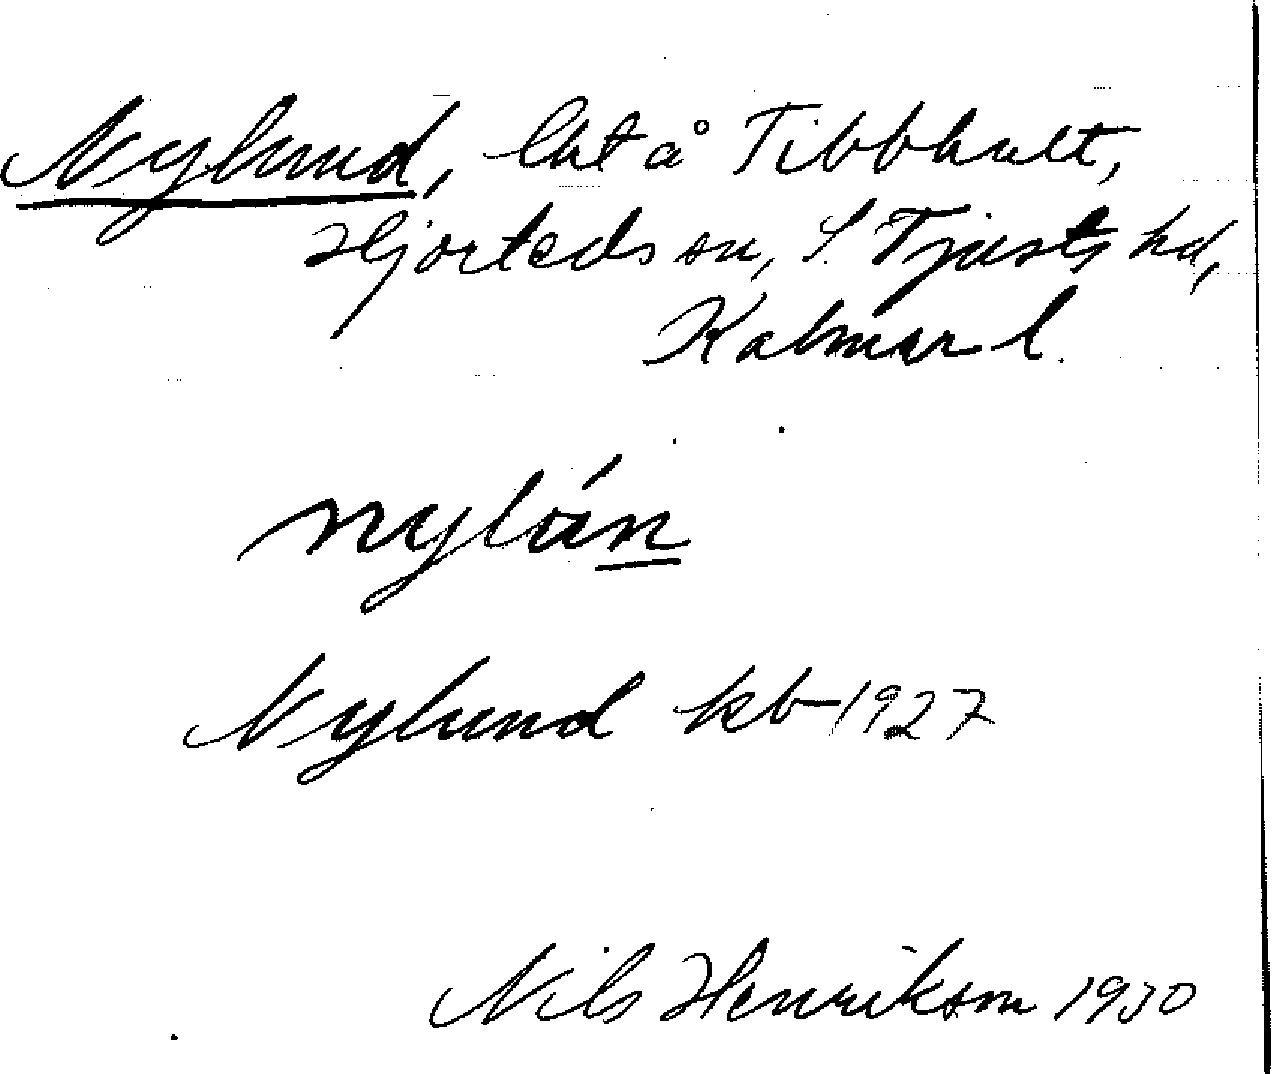 Nylund, lht å Tibbhult,
Hjorteds sn, S. Tjusts hd,
Kalmar l.
nylún
Nylund kb 1927
Nils Henrikson 1930